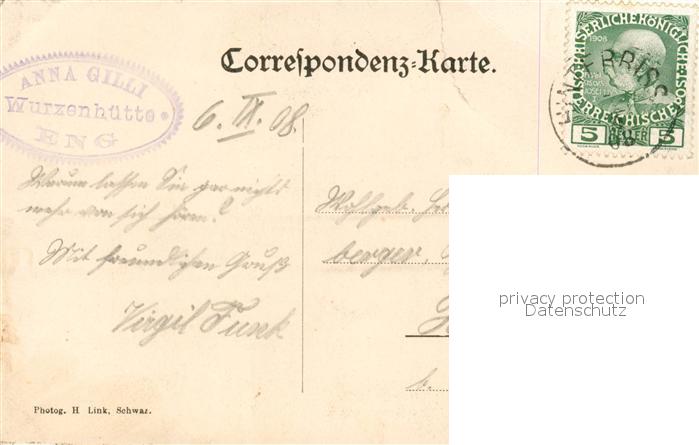 Correspondenz-Karte.
ANNA GILLI
Wurzenhütte
ENG
6. IX. 08.
1908
KAISERLICHE KÖNIGLICHE
ÖSTERREICHISCHE POST
5 HELLER 5
HINTERRISS
08
Warum lassen Sie gar nichts
mehr von sich hören?
Mit freundlichen Gruß
Virgil Funk
Wohlgeb.
berger,
Photog. H Link, Schwaz.
privacy protection
Datenschutz